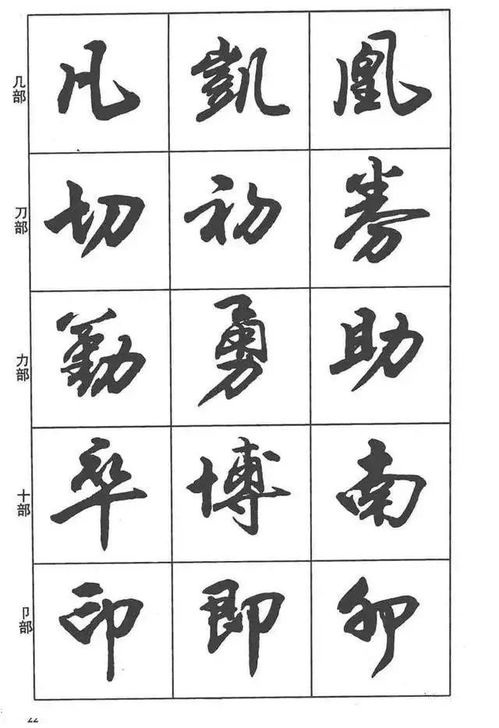 几部 凡 凱 凰
刀部 切 初 券
力部 勤 勇 助
十部 卒 博 南
卩部 印 即 卯